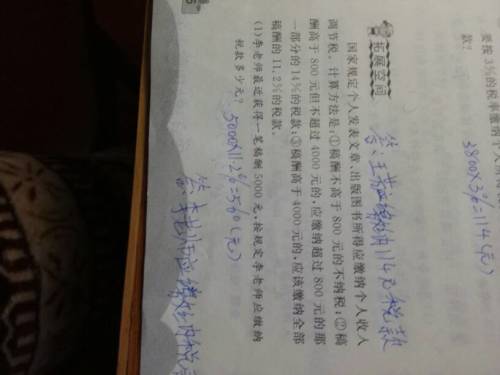 要按3%的税
款?
3800×3%=114(元)
114元税款
拓展空间
国家规定个人发表文章、出版图书所得应缴纳个人收入
调节税。计算方法是:①稿酬不高于800元的不纳税;②稿
酬高于800元但不超过4000元的,应缴纳超过800元的那
一部分的14%的税款;③稿酬高于4000元的,应该缴纳全部
稿酬的11.2%的税款。
(1)李老师最近获得一笔稿酬5000元,按规定李老师应缴纳
税款多少元?
5000×11.2%=560(元)
答:李老师应缴纳税